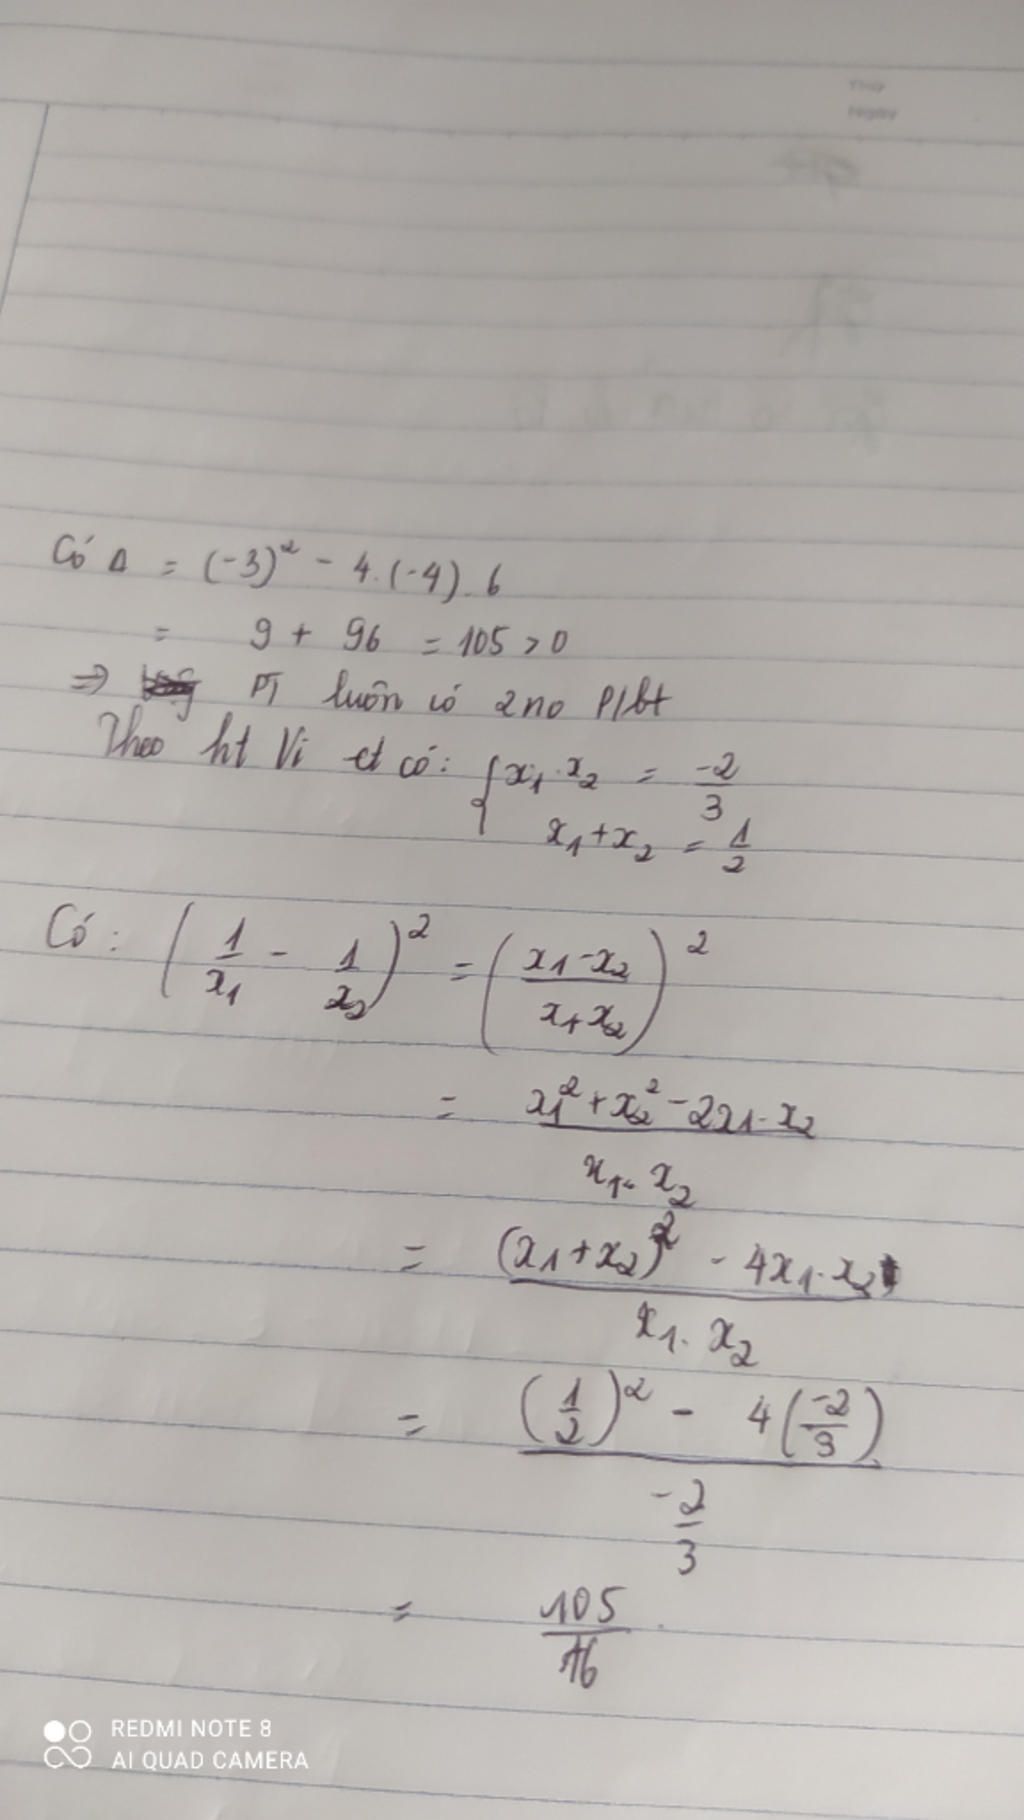 Thứ
Ngày
Có Δ = (-3)² - 4.(-4).6
= 9 + 96 = 105 > 0
⇒ PT luôn có 2 no P/bt
Theo ht Vi et có: { x₁.x₂ = -2/3
x₁+x₂ = 1/2
Có: (1/x₁ - 1/x₂)² = (x₁-x₂/x₁x₂)²
= x₁²+x₂²-2x₁.x₂/x₁.x₂
= (x₁+x₂)² - 4x₁.x₂/x₁.x₂
= (1/2)² - 4(-2/3)/-2/3
= 105/16
REDMI NOTE 8
AI QUAD CAMERA